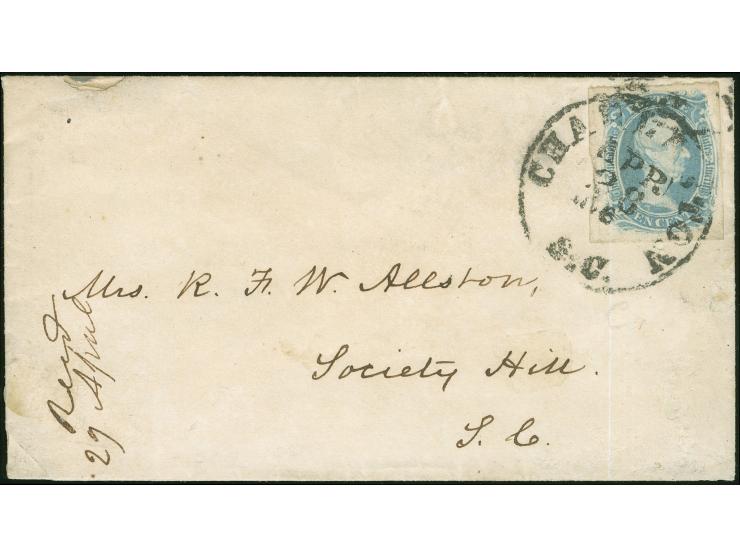 CHARLESTON
S.C.
TEN CENTS
Mrs. R. F. W. Allston,
Society Hill.
S. C.
Recd
29 April